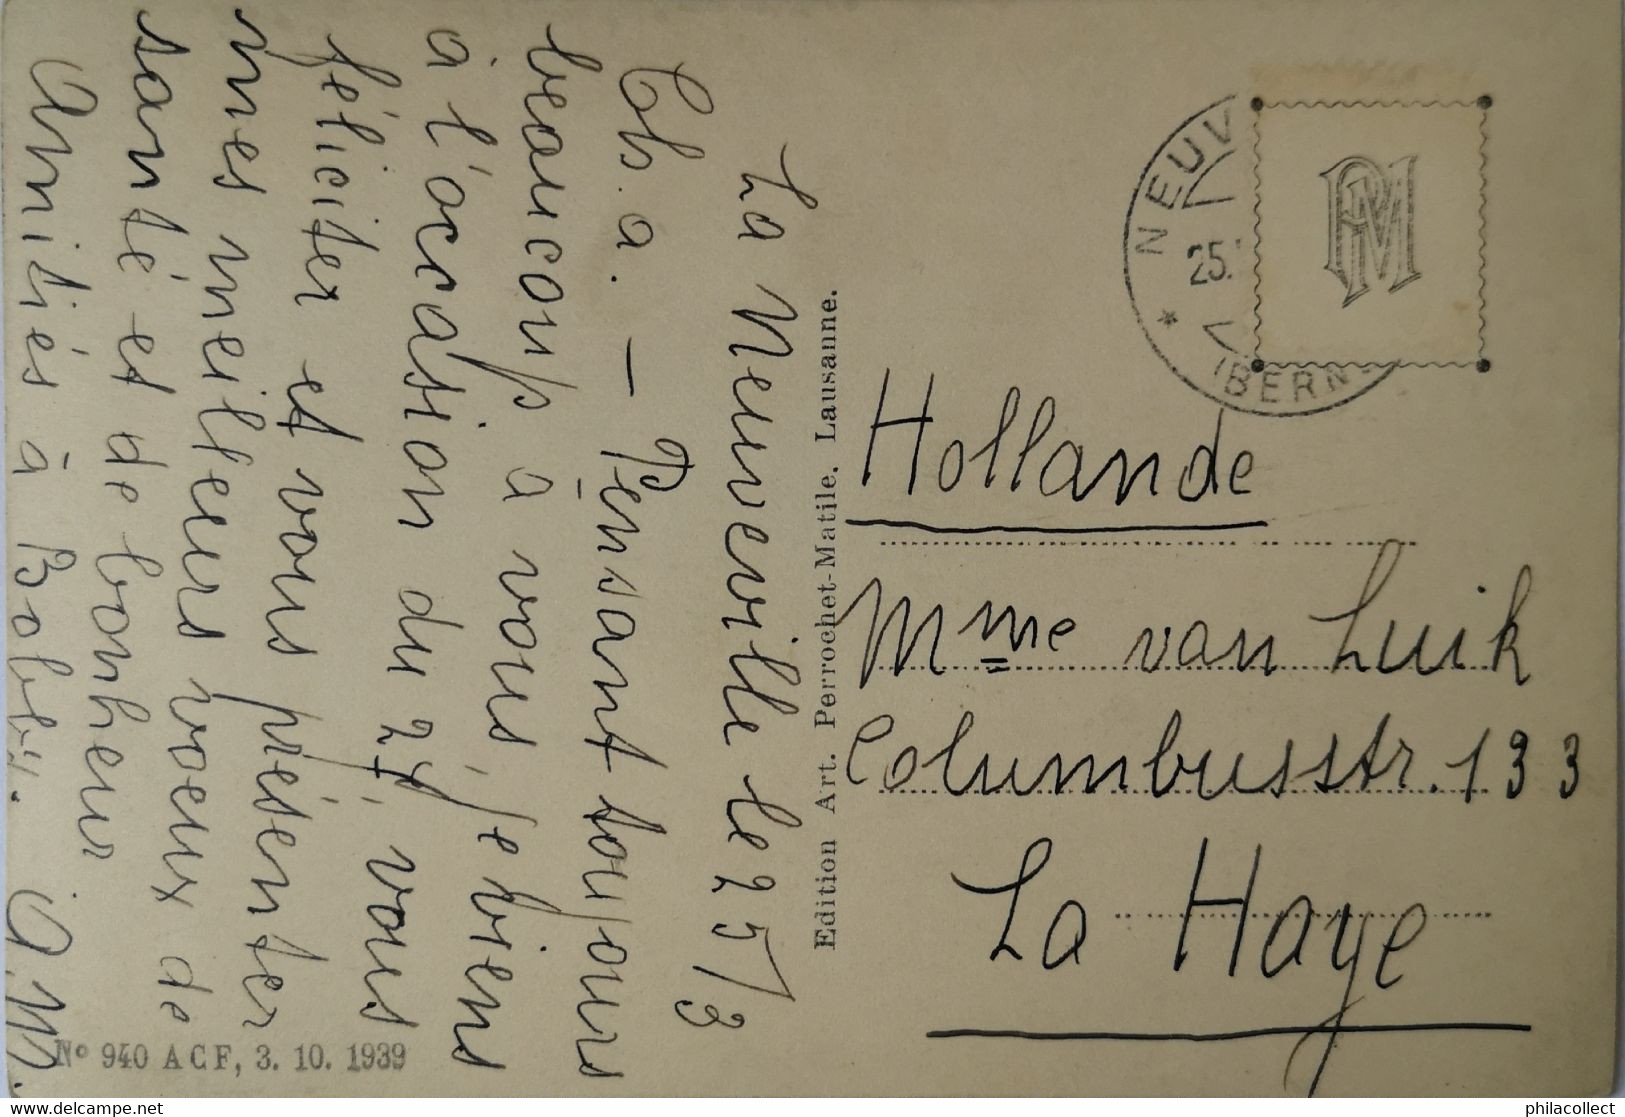 La Neuveville le 25/3
Ch. a. — Pensant toujours
beaucoup à vous, je viens
à l'occasion du 27, vous
féliciter et vous présenter
mes meilleurs voeux de
santé et de bonheur
Amitiés à Bobex. A.M.
Edition Art. Perrochet-Matile. Lausanne.
NEUV
25.
(BERN
PM
Hollande
Mme van Luik
Columbusstr. 133
La Haye
No 940 ACF, 3. 10. 1939
philacollect